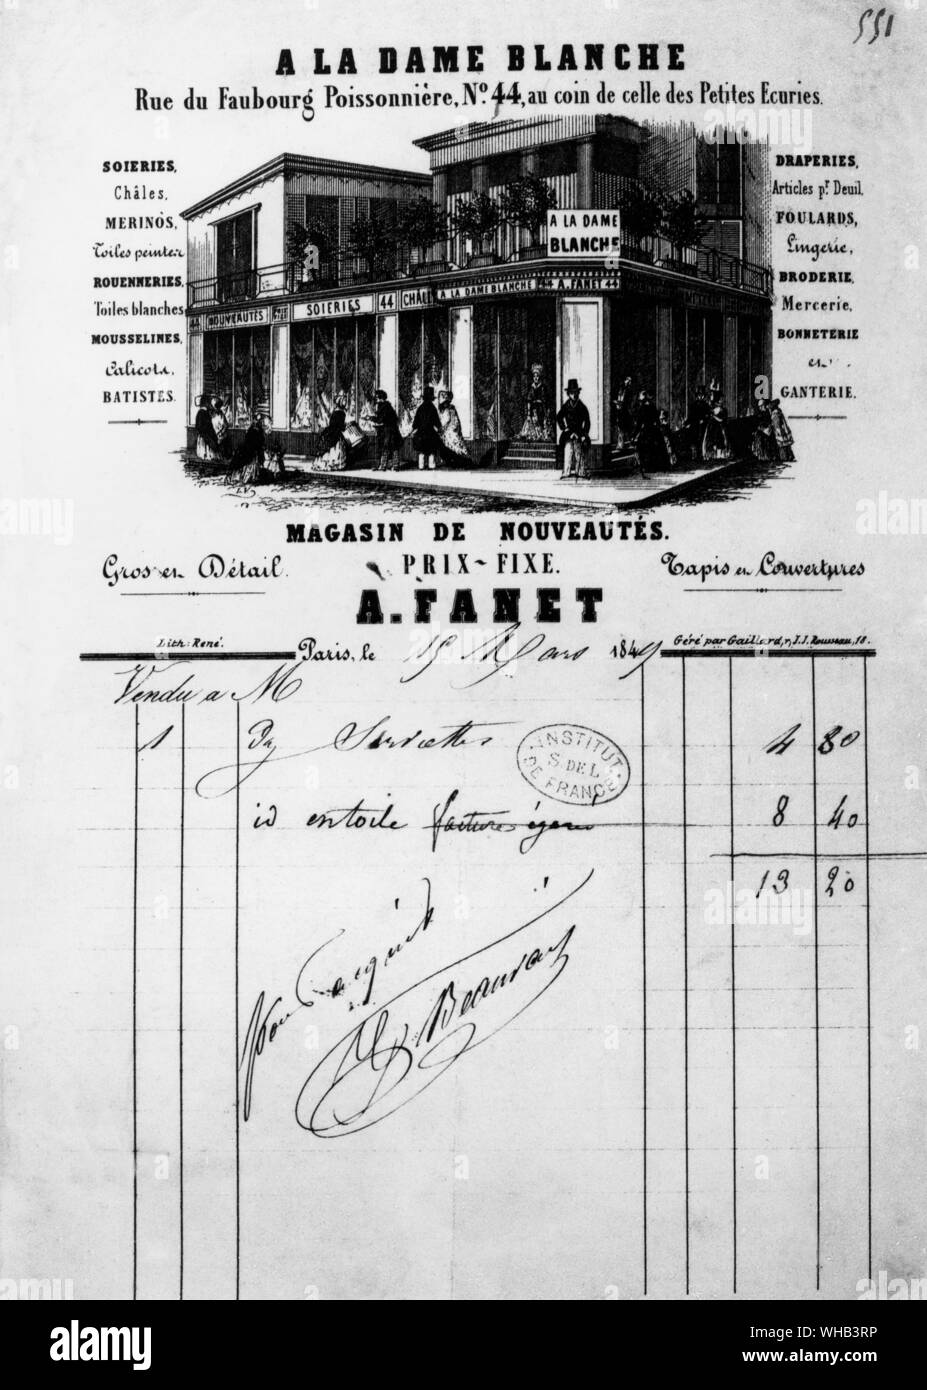 551
A LA DAME BLANCHE
Rue du Faubourg Poissonnière, Nº 44, au coin de celle des Petites Ecuries.
SOIERIES,
Châles,
MERINOS,
Toiles peintes
ROUENNERIES,
Toiles blanches
MOUSSELINES,
Calicots,
BATISTES.
DRAPERIES,
Articles pr. Deuil,
FOULARDS,
Lingerie,
BRODERIE,
Mercerie,
BONNETERIE
et
GANTERIE.
A LA DAME
BLANCHE
NOUVEAUTÉS
SOIERIES
44
CHÂL
A LA DAME BLANCHE
44 A. FANET 44
MAGASIN DE NOUVEAUTÉS.
Gros en Détail.
PRIX-FIXE.
Tapis en Couvertures
A. FANET
Lith: René.
Paris, le 15 Mars 1849
Géré par Gaillard, r. J.J. Rousseau, 18.
Vendu a M
1 Dz Serviettes 4 80
INSTITUT
S. DE L.
DE FRANCE
id en toile 8 40
13 20
Pour acquit
Beauvais
alamy
Image ID: WHB3RP
www.alamy.com